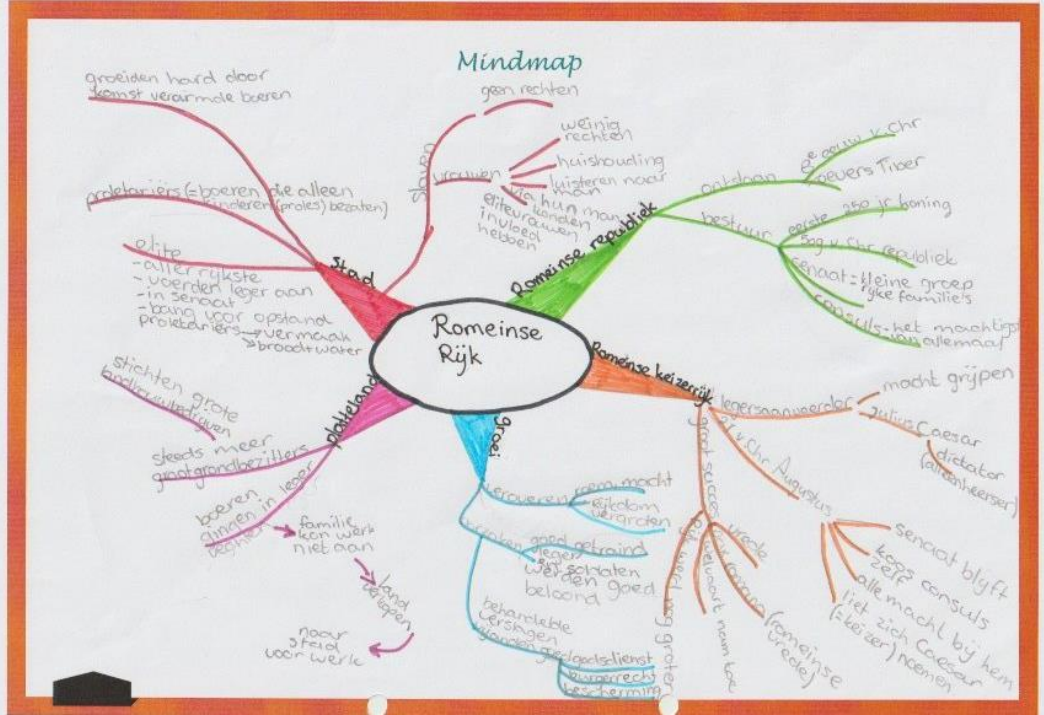 Mindmap
Romeinse
Rijk
Stad
groeiden hard door
komst verarmde boeren
proletariërs (= boeren die alleen
kinderen (proles) bezaten)
elite
- allerrijkste
- voerden leger aan
- in senaat
- bang voor opstand
proletariërs → vermaak
brood + water
slaven
geen rechten
vrouwen
weinig
rechten
huishouding
luisteren naar
man
via hun man
konden
elitevrouwen
invloed
hebben
Romeinse republiek
ontstaan
eeuw v. Chr
oevers Tiber
bestuur
eerste 250 jr koning
509 v. Chr republiek
senaat = kleine groep
rijke familie's
consuls = het machtigst
van allemaal
Romeinse keizerrijk
legeraanvoerder
macht grijpen
Julius Caesar
dictator
(alleenheerser)
v. Chr Augustus
senaat blijft
koos consuls
zelf
alle macht bij hem
liet zich Caesar
(= keizer) noemen
groot succes
vrede
(romeinse
vrede)
welvaart nam toe
rijk werd nog groter
groei
veroveren
roem, macht
rijkdom
vergroten
goed getraind
leger
soldaten
werden goed
beloond
behandelde
verslagen
landen goed
godsdienst
burgerrecht
bescherming
platteland
stichten grote
landbouwbedrijven
steeds meer
grootgrondbezitters
boeren
gingen in leger
vechten
familie
kon werk
niet aan
land
verkopen
naar
stad
voor werk